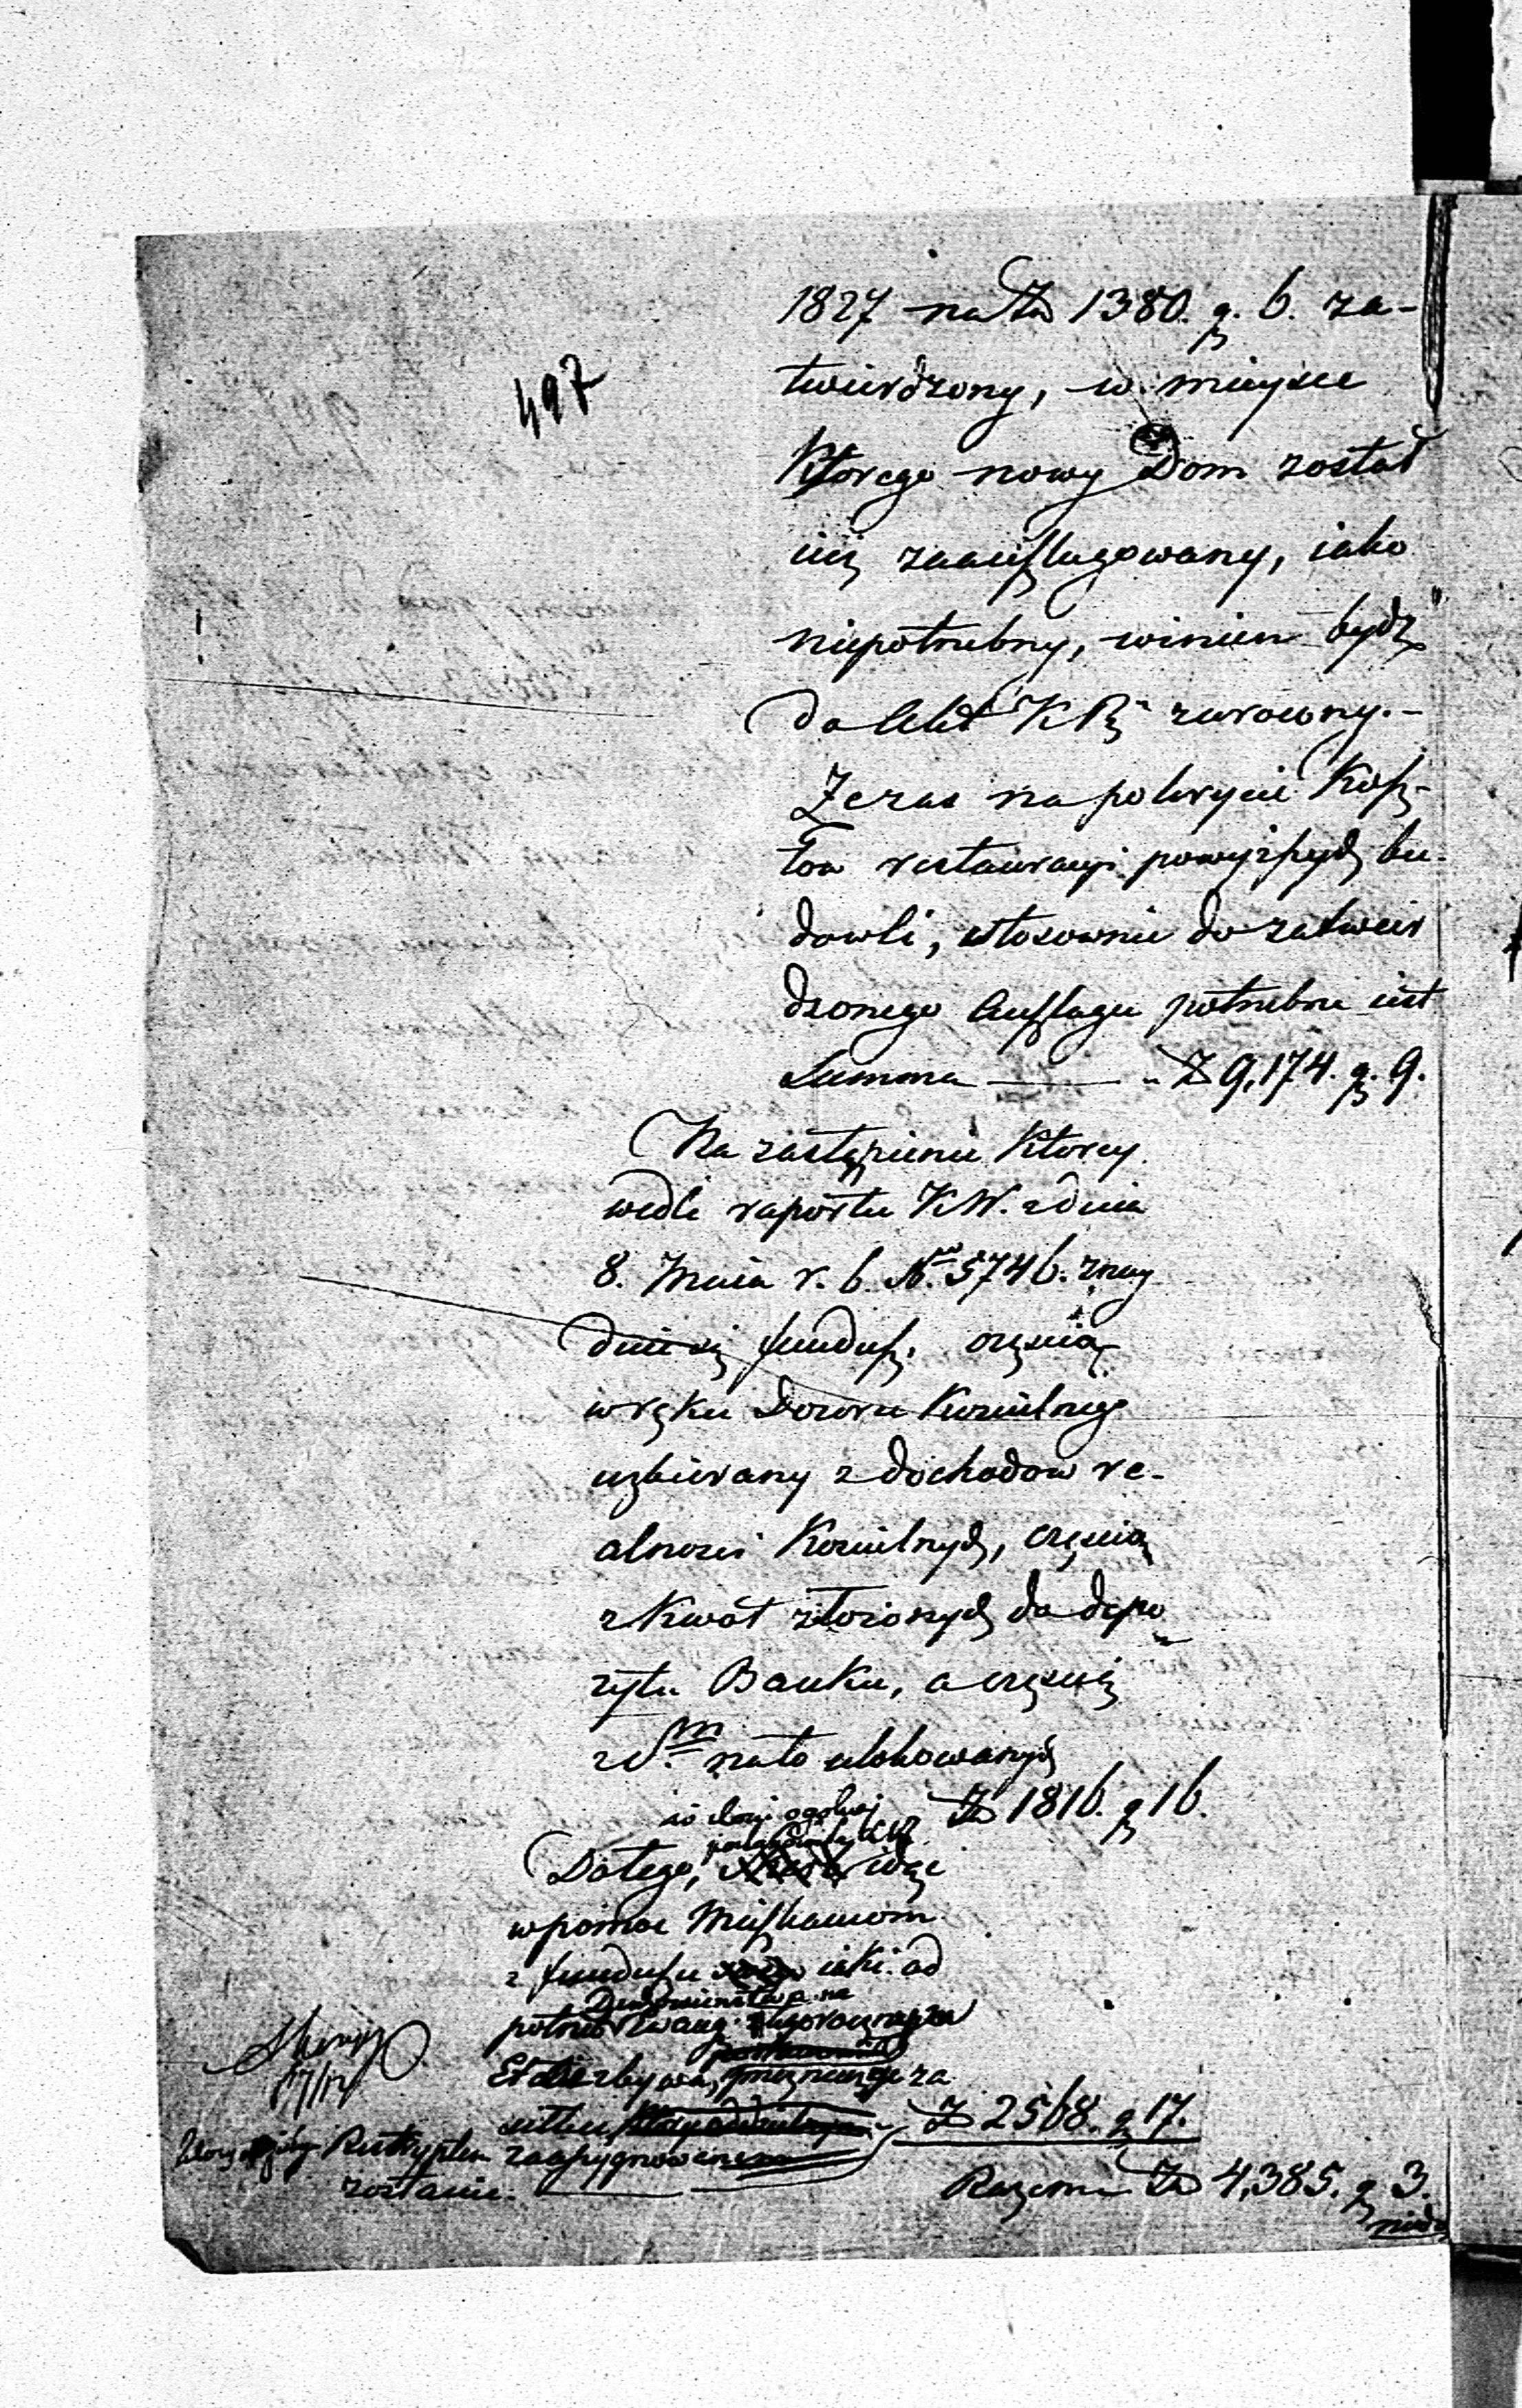 497
1827 na Zł 1380. g. 6. za-
twierdzony, w mieysce
Ktorego nowy Dom został
iuż zaanszlagowany, iako
niepotrzebny, winien bydź
do Akt KRz zwrocony.-
Zczas na pokrycie Kosz-
tow restauracyi powyższych bu-
dowli, stosownie do zatwier
dzonego Anszlagu potrzebna iest
Summa — Zł 9,174. g. 9.
Na zastąpienie Ktorey
wedle raportu KW. z dnia
8. Maia r. b. No. 5746. znay
duie się fundusz, częścią
w ręku Dozoru Koscielnego
uzbierany z dochodow re-
alnosci Koscielnych, częścią
z Kwot złożonych do depo
zytu Banku, a częścią
z W. m na to ulokowanych
Zł 1816. g 16.
Do tego, idąc
w pomoc Mieszkancom
z funduszu iaki. od
potrzeb
za
Zł 2568. g 17.
Reskryptem zaassygnowanem
zostanie.
Razem Zł 4,385. g 3.